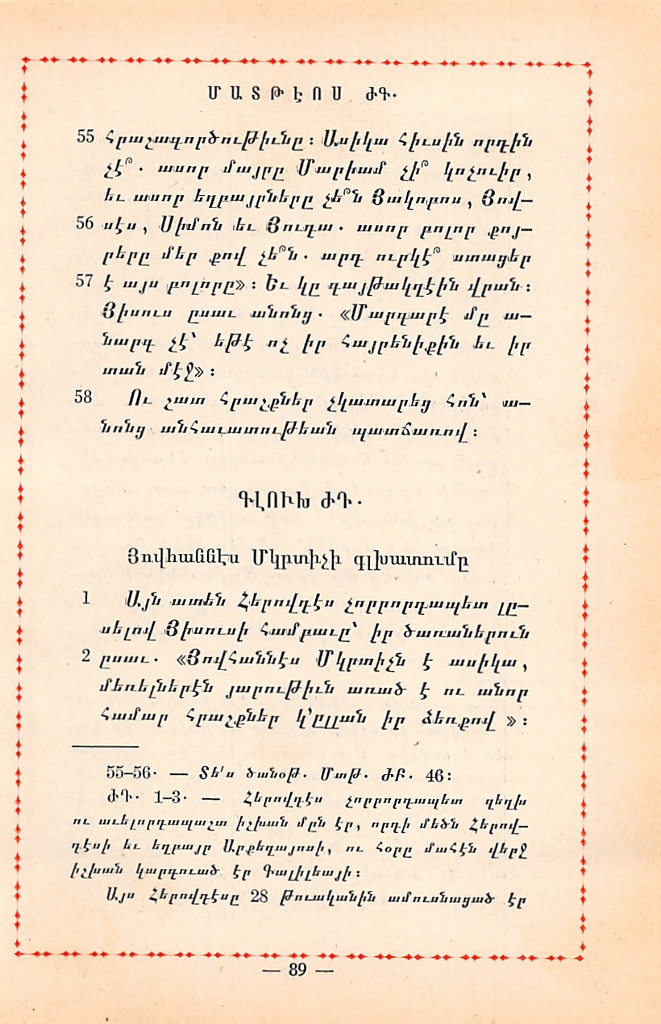 ՄԱՏԹԷՈՍ ԺԳ․
55 հրաչագործութիւնը։ Ասիկա հիւսին որդին
չէ՞․ ասոր մայրը Մարիամ չի՞ կոչուիր,
եւ ասոր եղբայրները չե՞ն Յակոբոս, Յով–
56 սէս, Սիմոն եւ Յուդա․ ասոր բոլոր քոյ–
րերը մեր քով չե՞ն․ արդ ուրկէ՞ ստացեր
57 է այս բոլորը»։ Եւ կը գայթակղէին վրան։
Յիսուս ըսաւ անոնց․ «Մարգարէ մը ա–
նարգ չէ՝ եթէ ոչ իր հայրենիքին եւ իր
տան մէջ»։
58 Ու շատ հրաշքներ չկատարեց հոն՝ ա–
նոնց անհաւատութեան պատճառով։
ԳԼՈՒԽ ԺԴ․
Յովհաննէս Մկրտիչի գլխատումը
1 Այն ատեն Հերովդէս չորրորդապետ լը–
սելով Յիսուսի համբաւը՝ իր ծառաներուն
2 ըսաւ․ «Յովհաննէս Մկրտիչն է ասիկա,
մեռելներէն յարութիւն առած է ու անոր
համար հրաշքներ կ՚ըլլան իր ձեռքով »։
55–56․ — Տե՛ս ծանօթ․ Մտթ․ ԺԲ․ 46։
ԺԴ․ 1–3․ — Հերովդէս չորրորդապետ զեղխ
ու աւելորդապաշտ իշխան մըն էր, որդի մեծն Հերով–
դէսի եւ եղբայր Արքեղայոսի, ու հօրը մահէն վերջ
իշխան կարգուած էր Գալիլեայի։
Այս Հերովդէսը 28 թուականին ամուսնացած էր
— 89 —